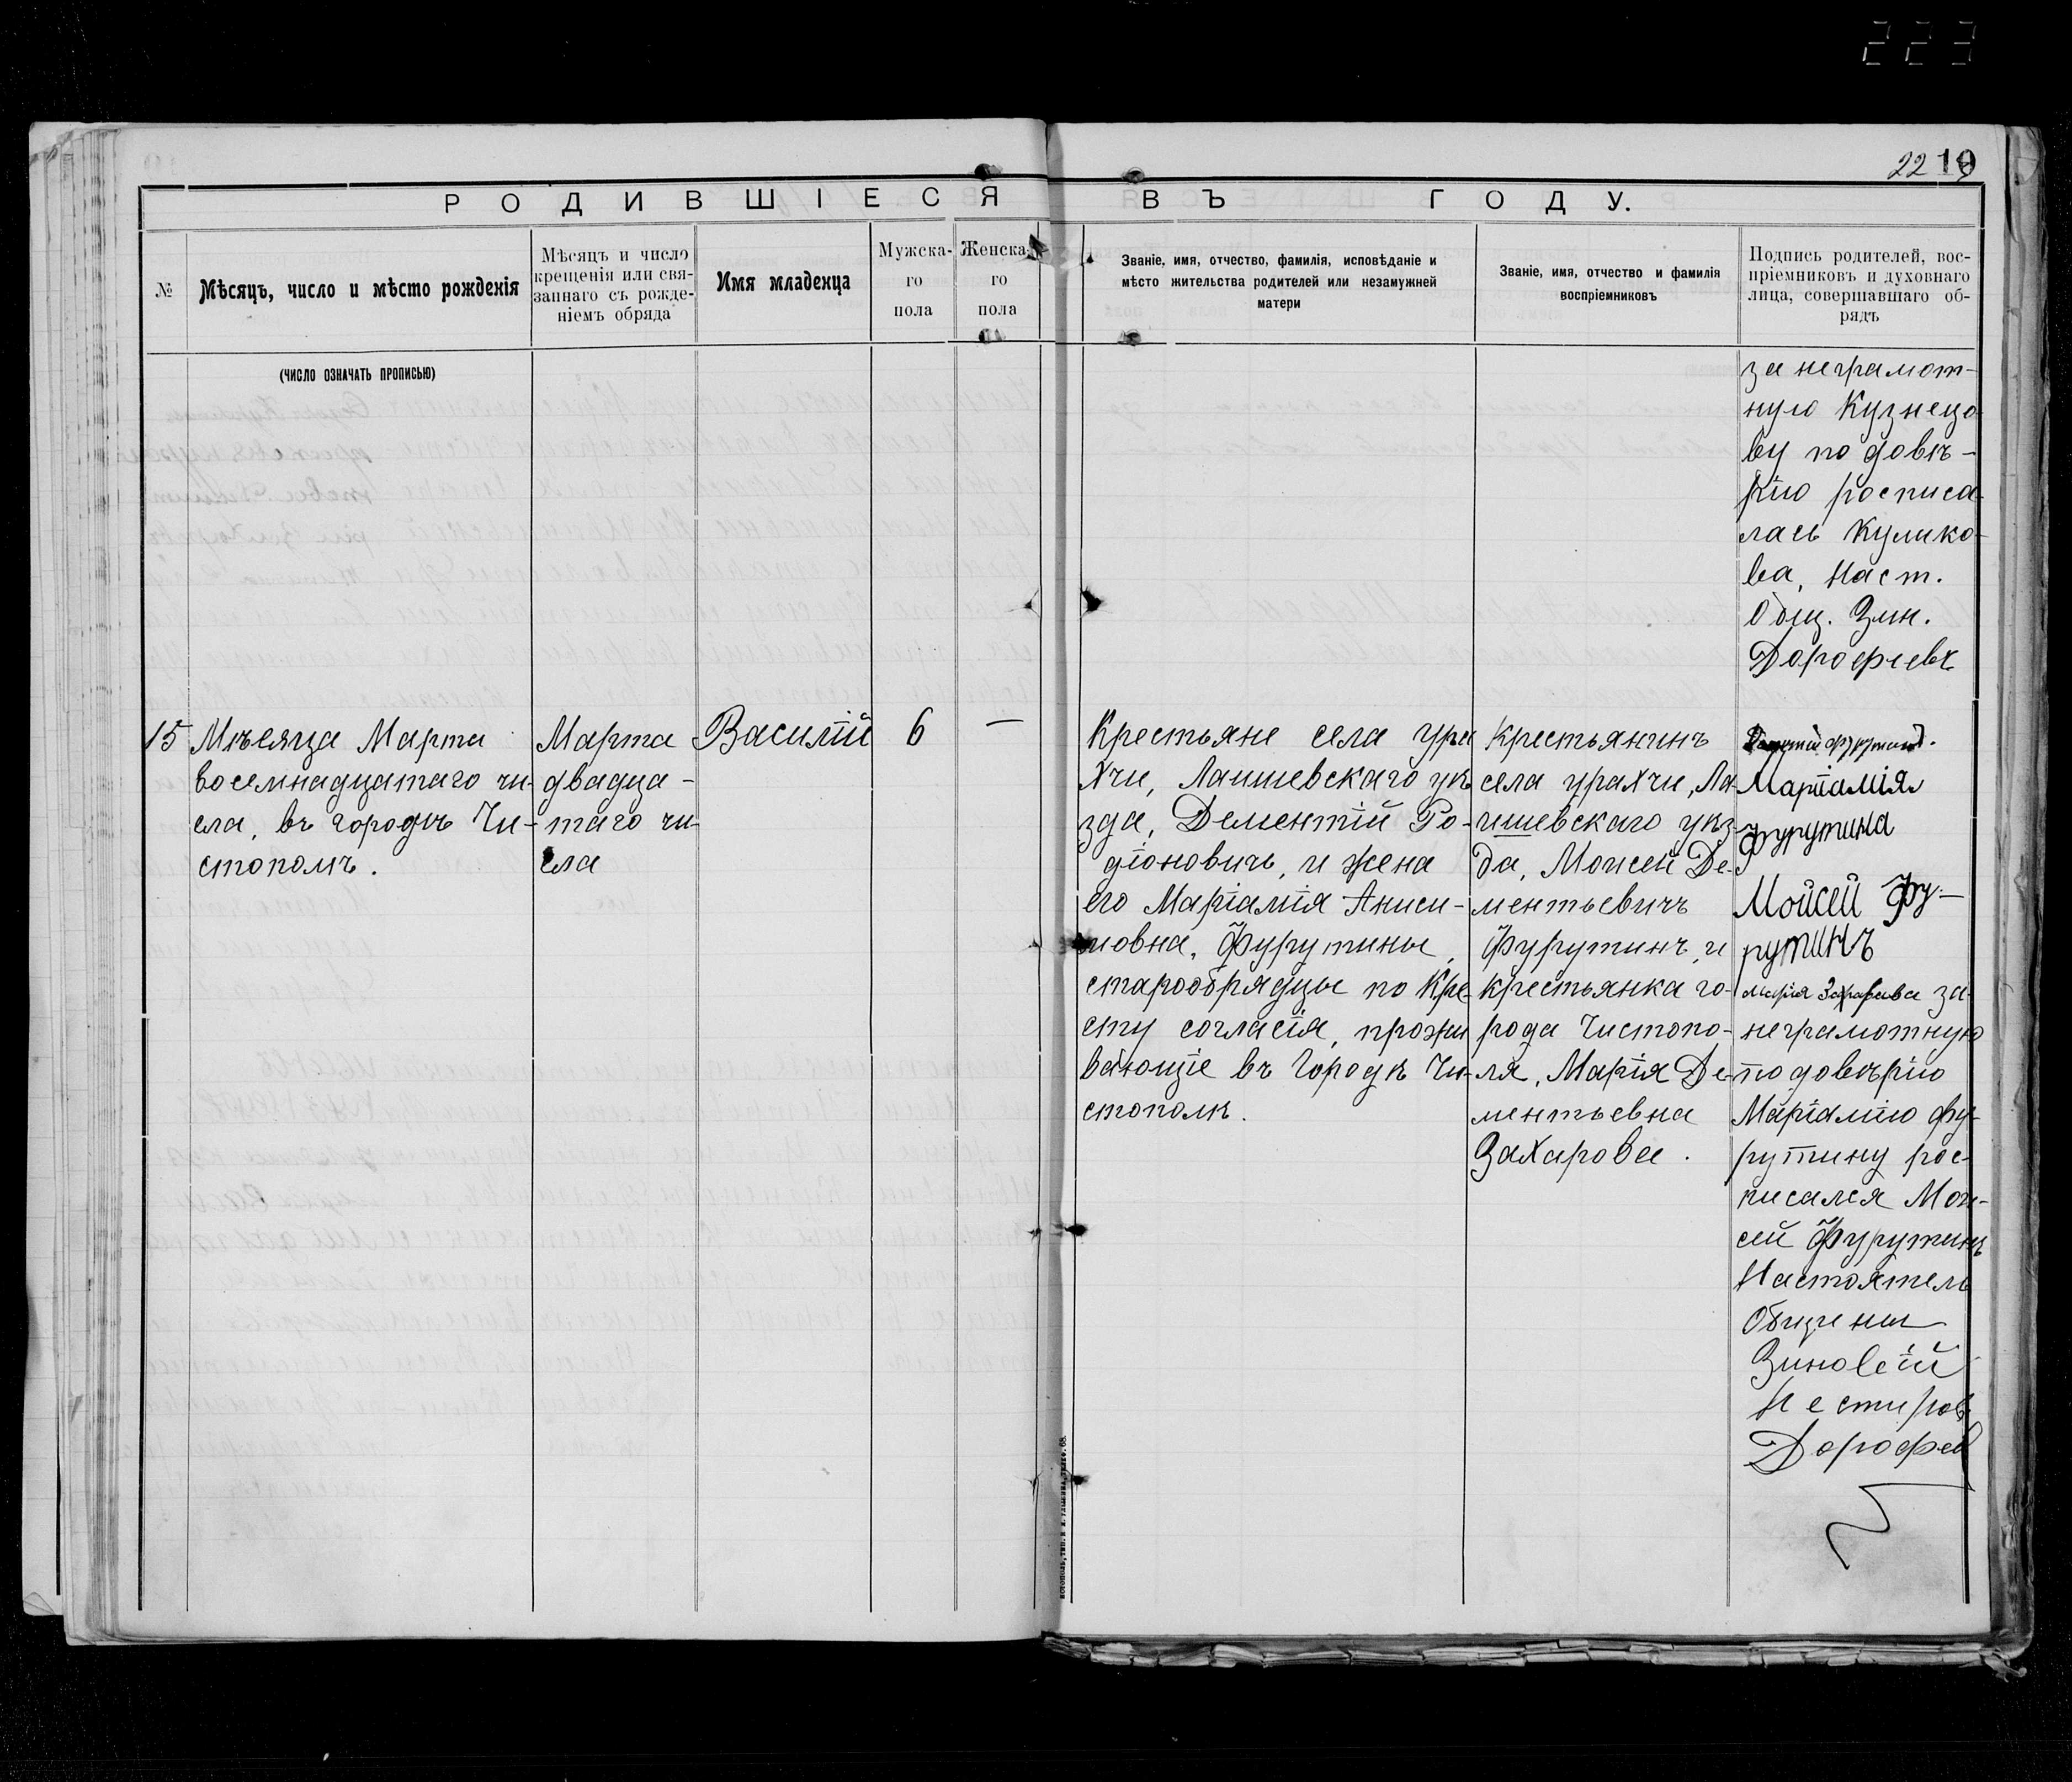 223
22 19
РОДИВШІЕСЯ ВЪ ГОДУ.
№
Мѣсяцъ, число и мѣсто рожденія
Мѣсяцъ и число
крещенія или свя-
заннаго съ рожде-
ніемъ обряда
Имя младенца
Мужска-
го
пола
Женска-
го
пола
Званіе, имя, отчество, фамилія, исповѣданіе и
мѣсто жительства родителей или незамужней
матери
Званіе, имя, отчество и фамилія
воспріемниковъ
Подпись родителей, вос-
пріемниковъ и духовнаго
лица, совершавшаго об-
рядъ
(ЧИСЛО ОЗНАЧАТЬ ПРОПИСЬЮ)
за неграмот-
ную Кузнецо
ву по довѣ-
рію росписа-
лась Кулико-
ва, Наст.
Общ. Зин.
Дорофеевъ
15
Мѣсяца Марта
восемнадцатаго чи-
сла, въ городѣ Чи-
стополѣ.
Марта
двадца-
таго чи-
сла
Василій
6
—
Крестьяне села Ура
хчи, Лаишевскаго уѣ
зда, Дементій Ро-
діоновичь, и жена
его Маріамія Аниси-
мовна, Фурутины,
старообрядцы по Кре-
сту согласія, прожи
вающіе въ Городѣ Чи-
стополѣ.
Крестьянинъ
села Урахчи, Ла-
ишевскаго уѣз-
да, Моисей Де-
ментьевичъ
Фурутинъ, и
крестьянка го-
рода Чистопо-
ля, Марія Де-
ментьевна
Захарова.
Маріамія
Фурутина
Мойсей Фу-
рутинъ
Марія Захарава за
неграмотную
по довѣрію
Маріамію Фу-
рутину рос-
писался Мои-
сей Фурутинъ
Настоятель
Общины
Зиновій
Нестиров
Дорофеев